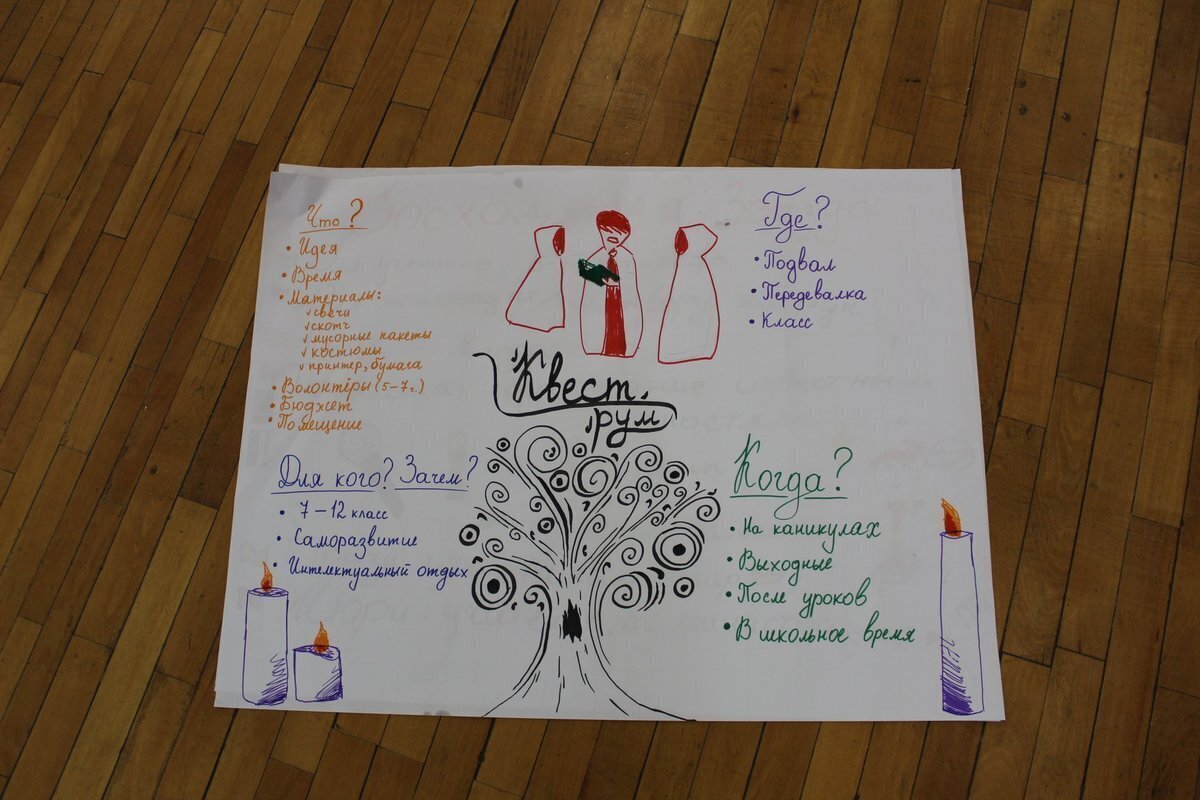 Что?
• Идея
• Время
• Материалы:
✓ свечи
✓ скотч
✓ мусорные пакеты
✓ костюмы
✓ принтер, бумага
• Волонтёры (5-7ч.)
• Бюджет
• Помещение
Где?
• Подвал
• Передевалка
• Класс
Квест.
рум
Для кого? Зачем?
• 7-12 класс
• Саморазвитие
• Интелектуальный отдых
Когда?
• На каникулах
• Выходные
• После уроков
• В школьное время